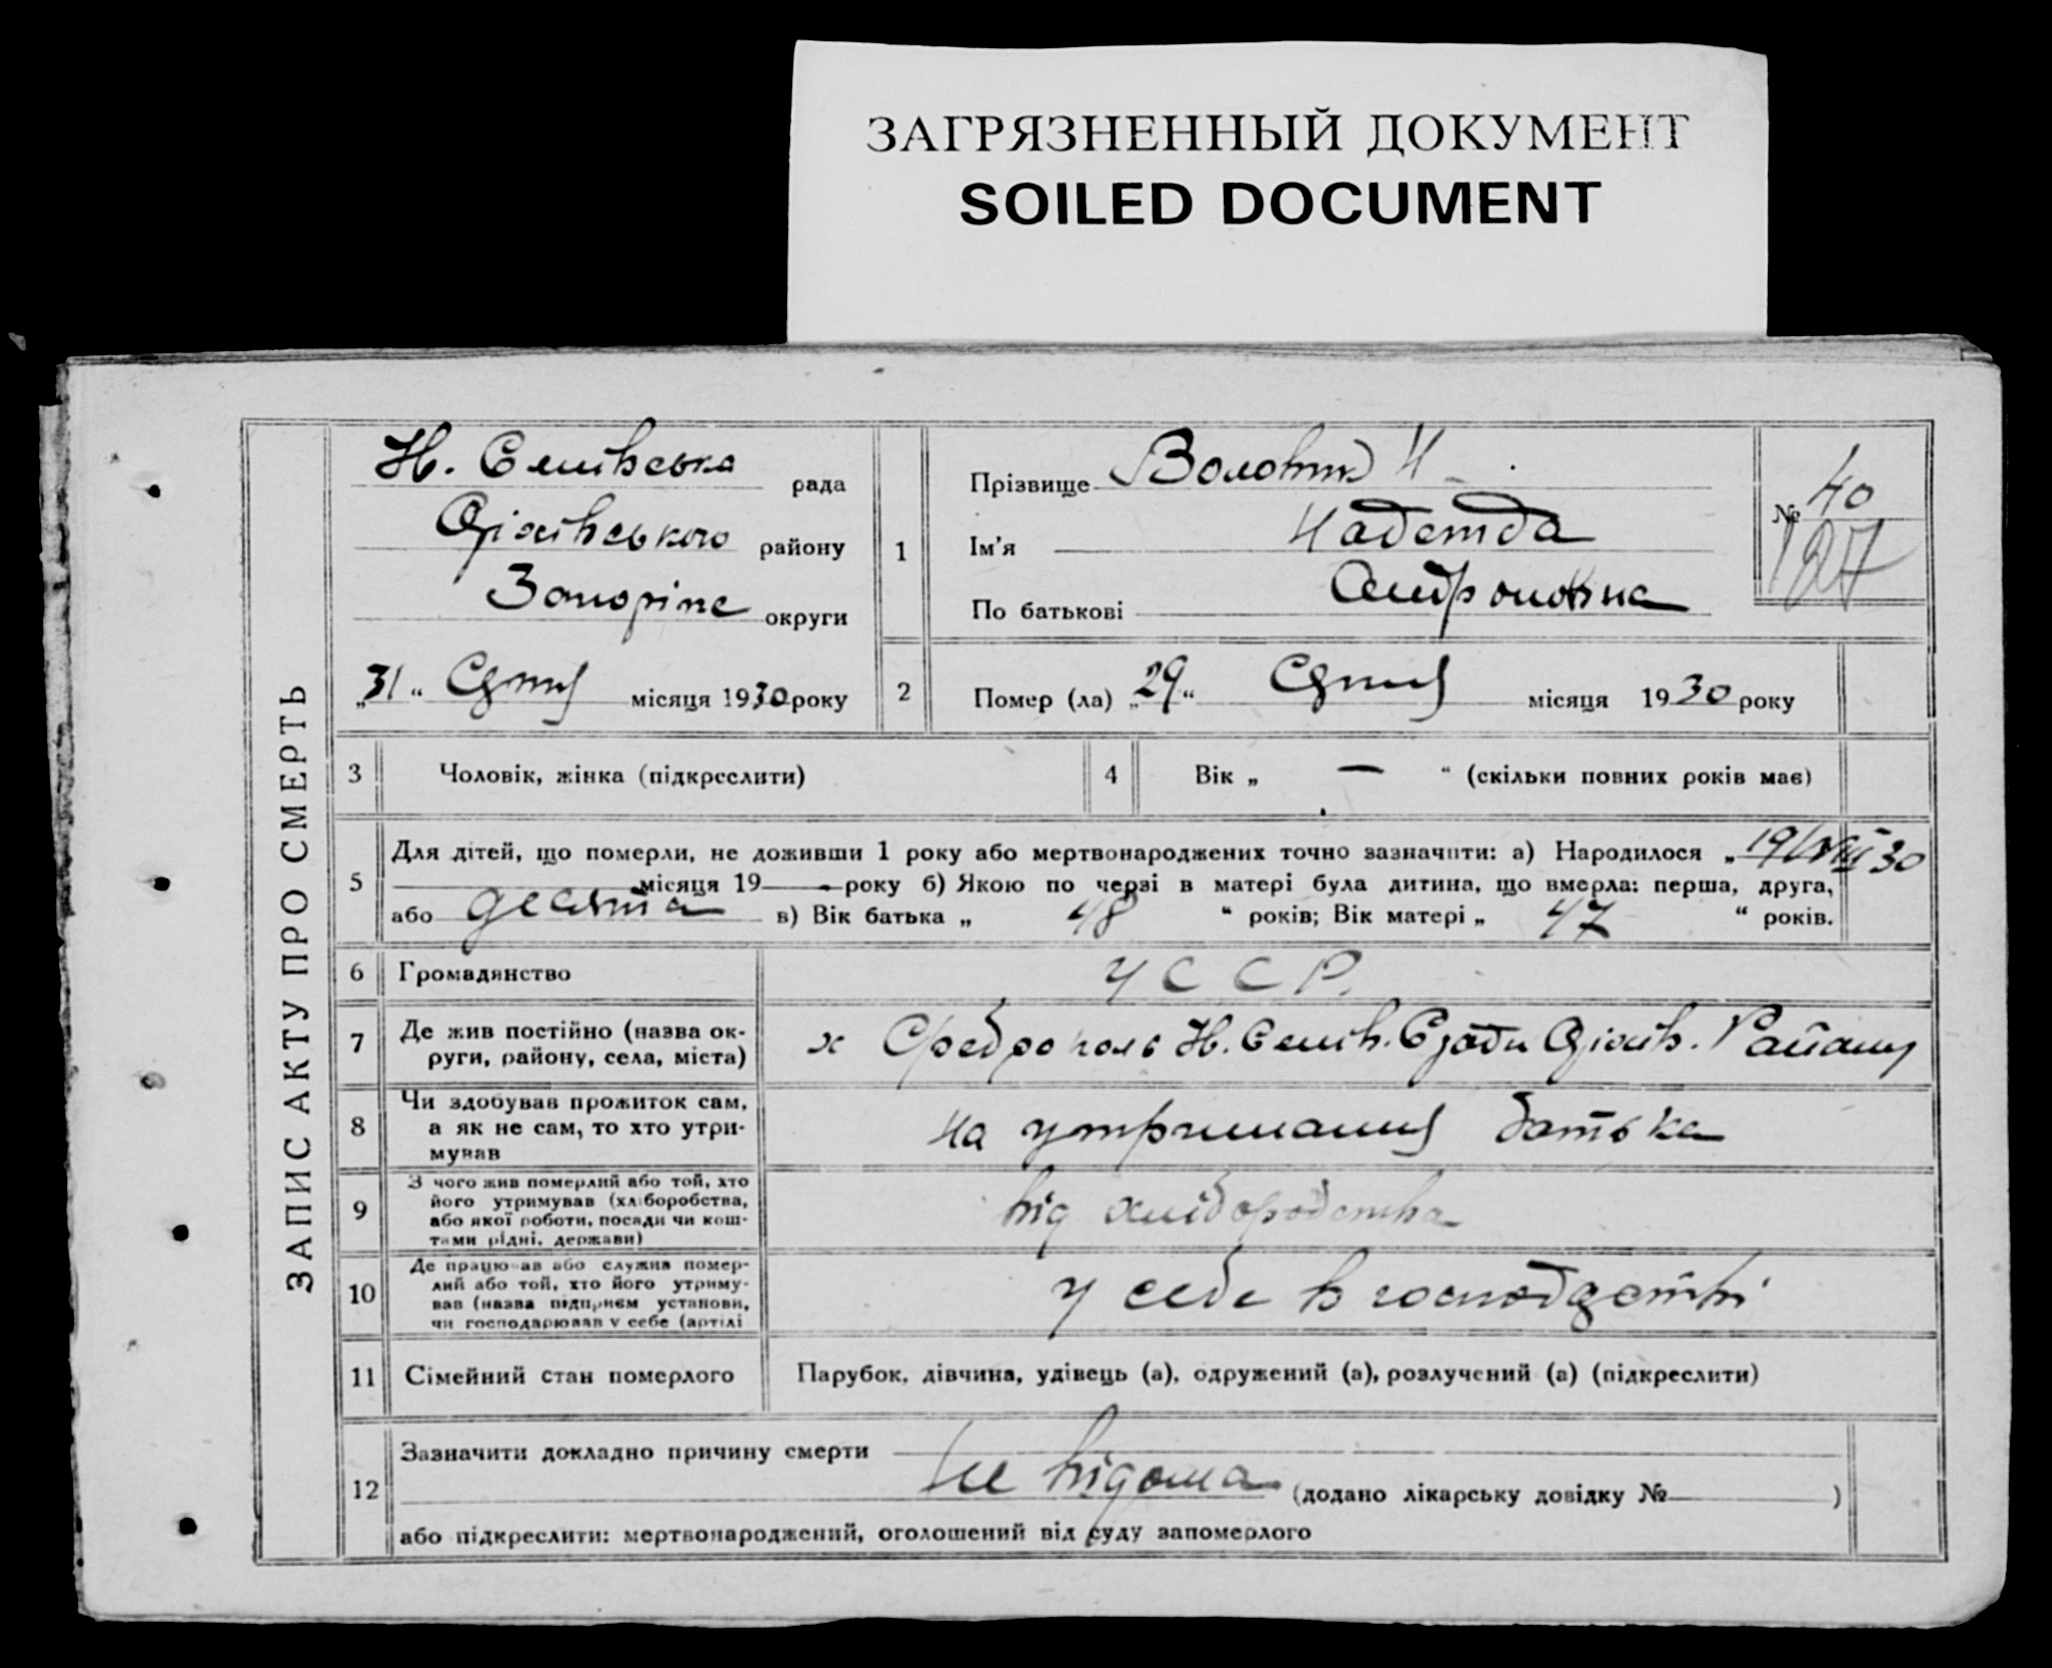 ЗАГРЯЗНЕННЫЙ ДОКУМЕНТ
SOILED DOCUMENT
ЗАПИС АКТУ ПРО СМЕРТЬ
Н. рада
Оріхівського району
Запоріже округи
„31“ Серпня місяця 1930 року
1
Прізвище Воловик Н
Ім'я Надежда
По батькові
№ 40
127
2
Помер (ла) „29“ Серпня місяця 1930 року
3 Чоловік, жінка (підкреслити)
4 Вік „ — “ (скільки повних років має)
5
Для дітей, що померли, не доживши 1 року або мертвонароджених точно зазначити: а) Народилося „19/VIII 30
місяця 19 року б) Якою по черзі в матері була дитина, що вмерла: перша, друга,
або десята в) Вік батька „ 48 “ років; Вік матері „ 47 “ років.
6 Громадянство УССР.
7 Де жив постійно (назва ок-
руги, району, села, міста)
х Среброполь Н. Ради Оріхів. Району
8 Чи здобував прожиток сам,
а як не сам, то хто утри-
мував
на утриманню батька
9 З чого жив померлий або той, хто
його утримував (хліборобства,
або якої роботи, посади чи кош-
тами рідні, держави)
від хліборобства
10 Де працював або служив помер-
лий або той, хто його утриму-
вав (назва підприєм установи,
чи господарював у себе (артілі
у себе в господарстві
11 Сімейний стан померлого Парубок, дівчина, удівець (а), одружений (а), розлучений (а) (підкреслити)
12 Зазначити докладно причину смерти
не відома (додано лікарську довідку № )
або підкреслити: мертвонароджений, оголошений від суду запомерлого